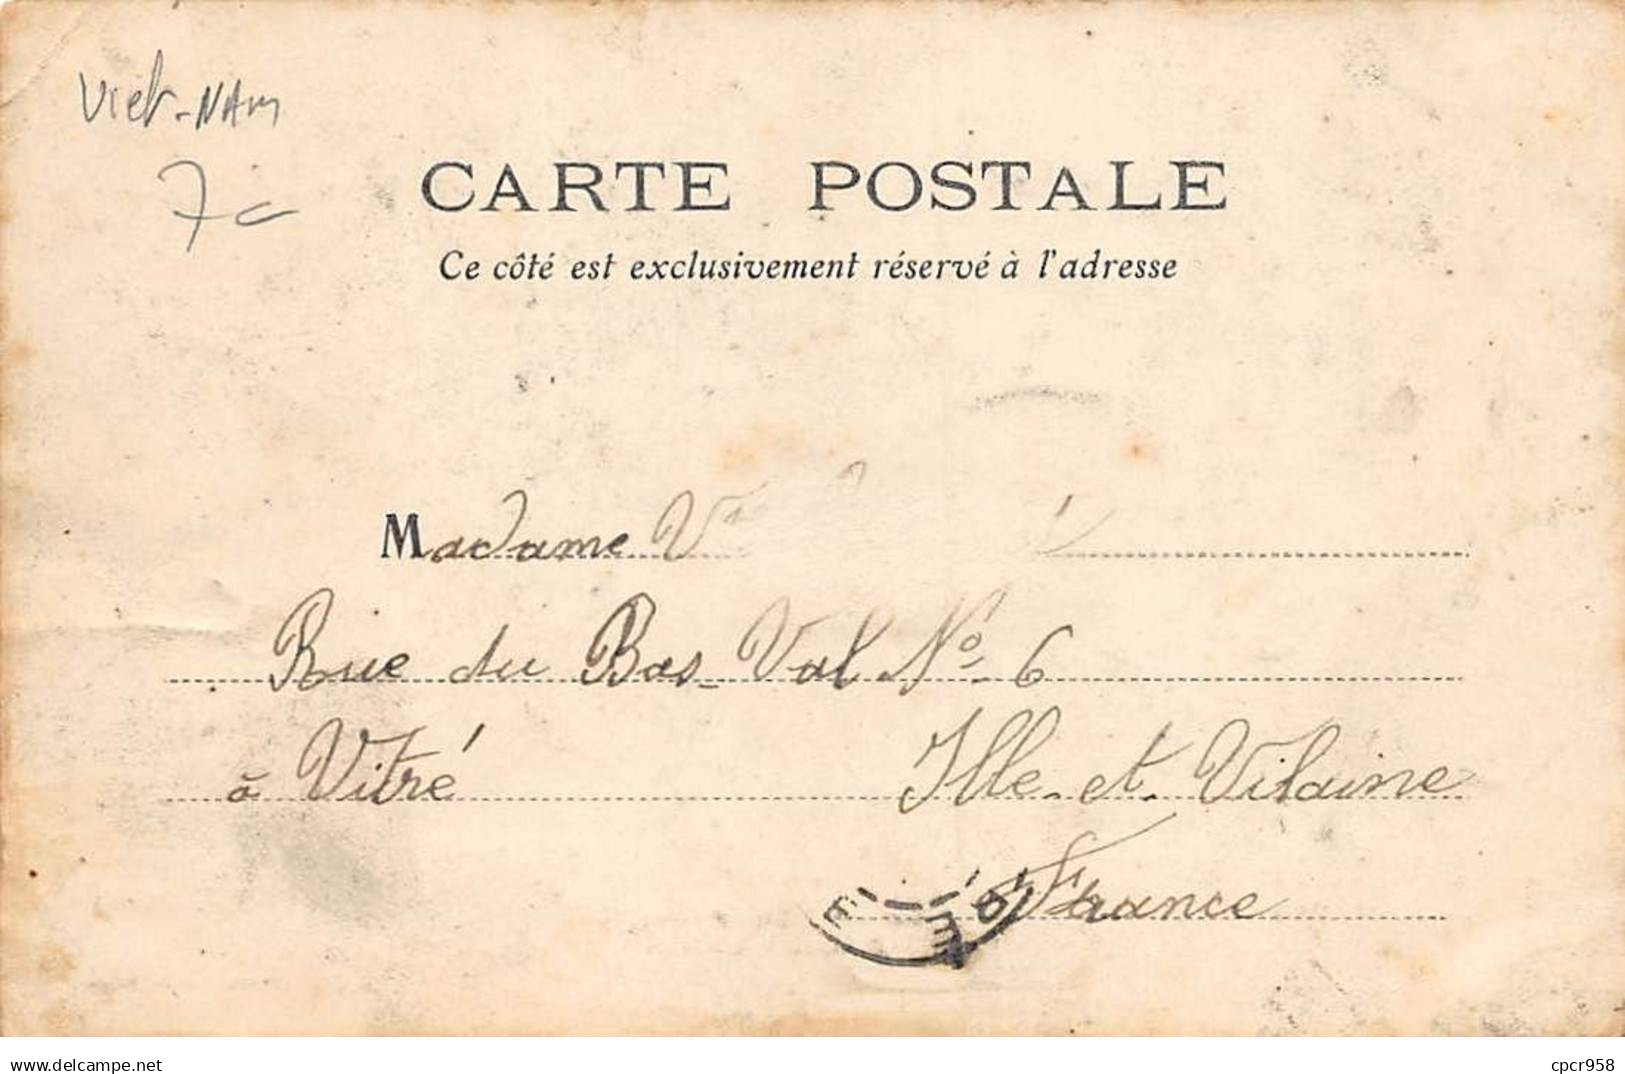 Viet-NAM
7c
CARTE POSTALE
Ce côté est exclusivement réservé à l'adresse
Madame V
Rue du Bas-Val Nº 6
à Vitré Ille-et-Vilaine
France
www.delcampe.net
cpcr958